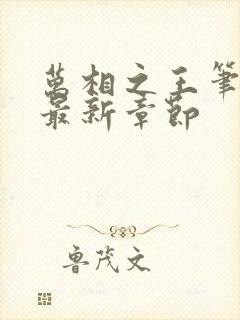 萬相之王筆
最新章節
魯茂文